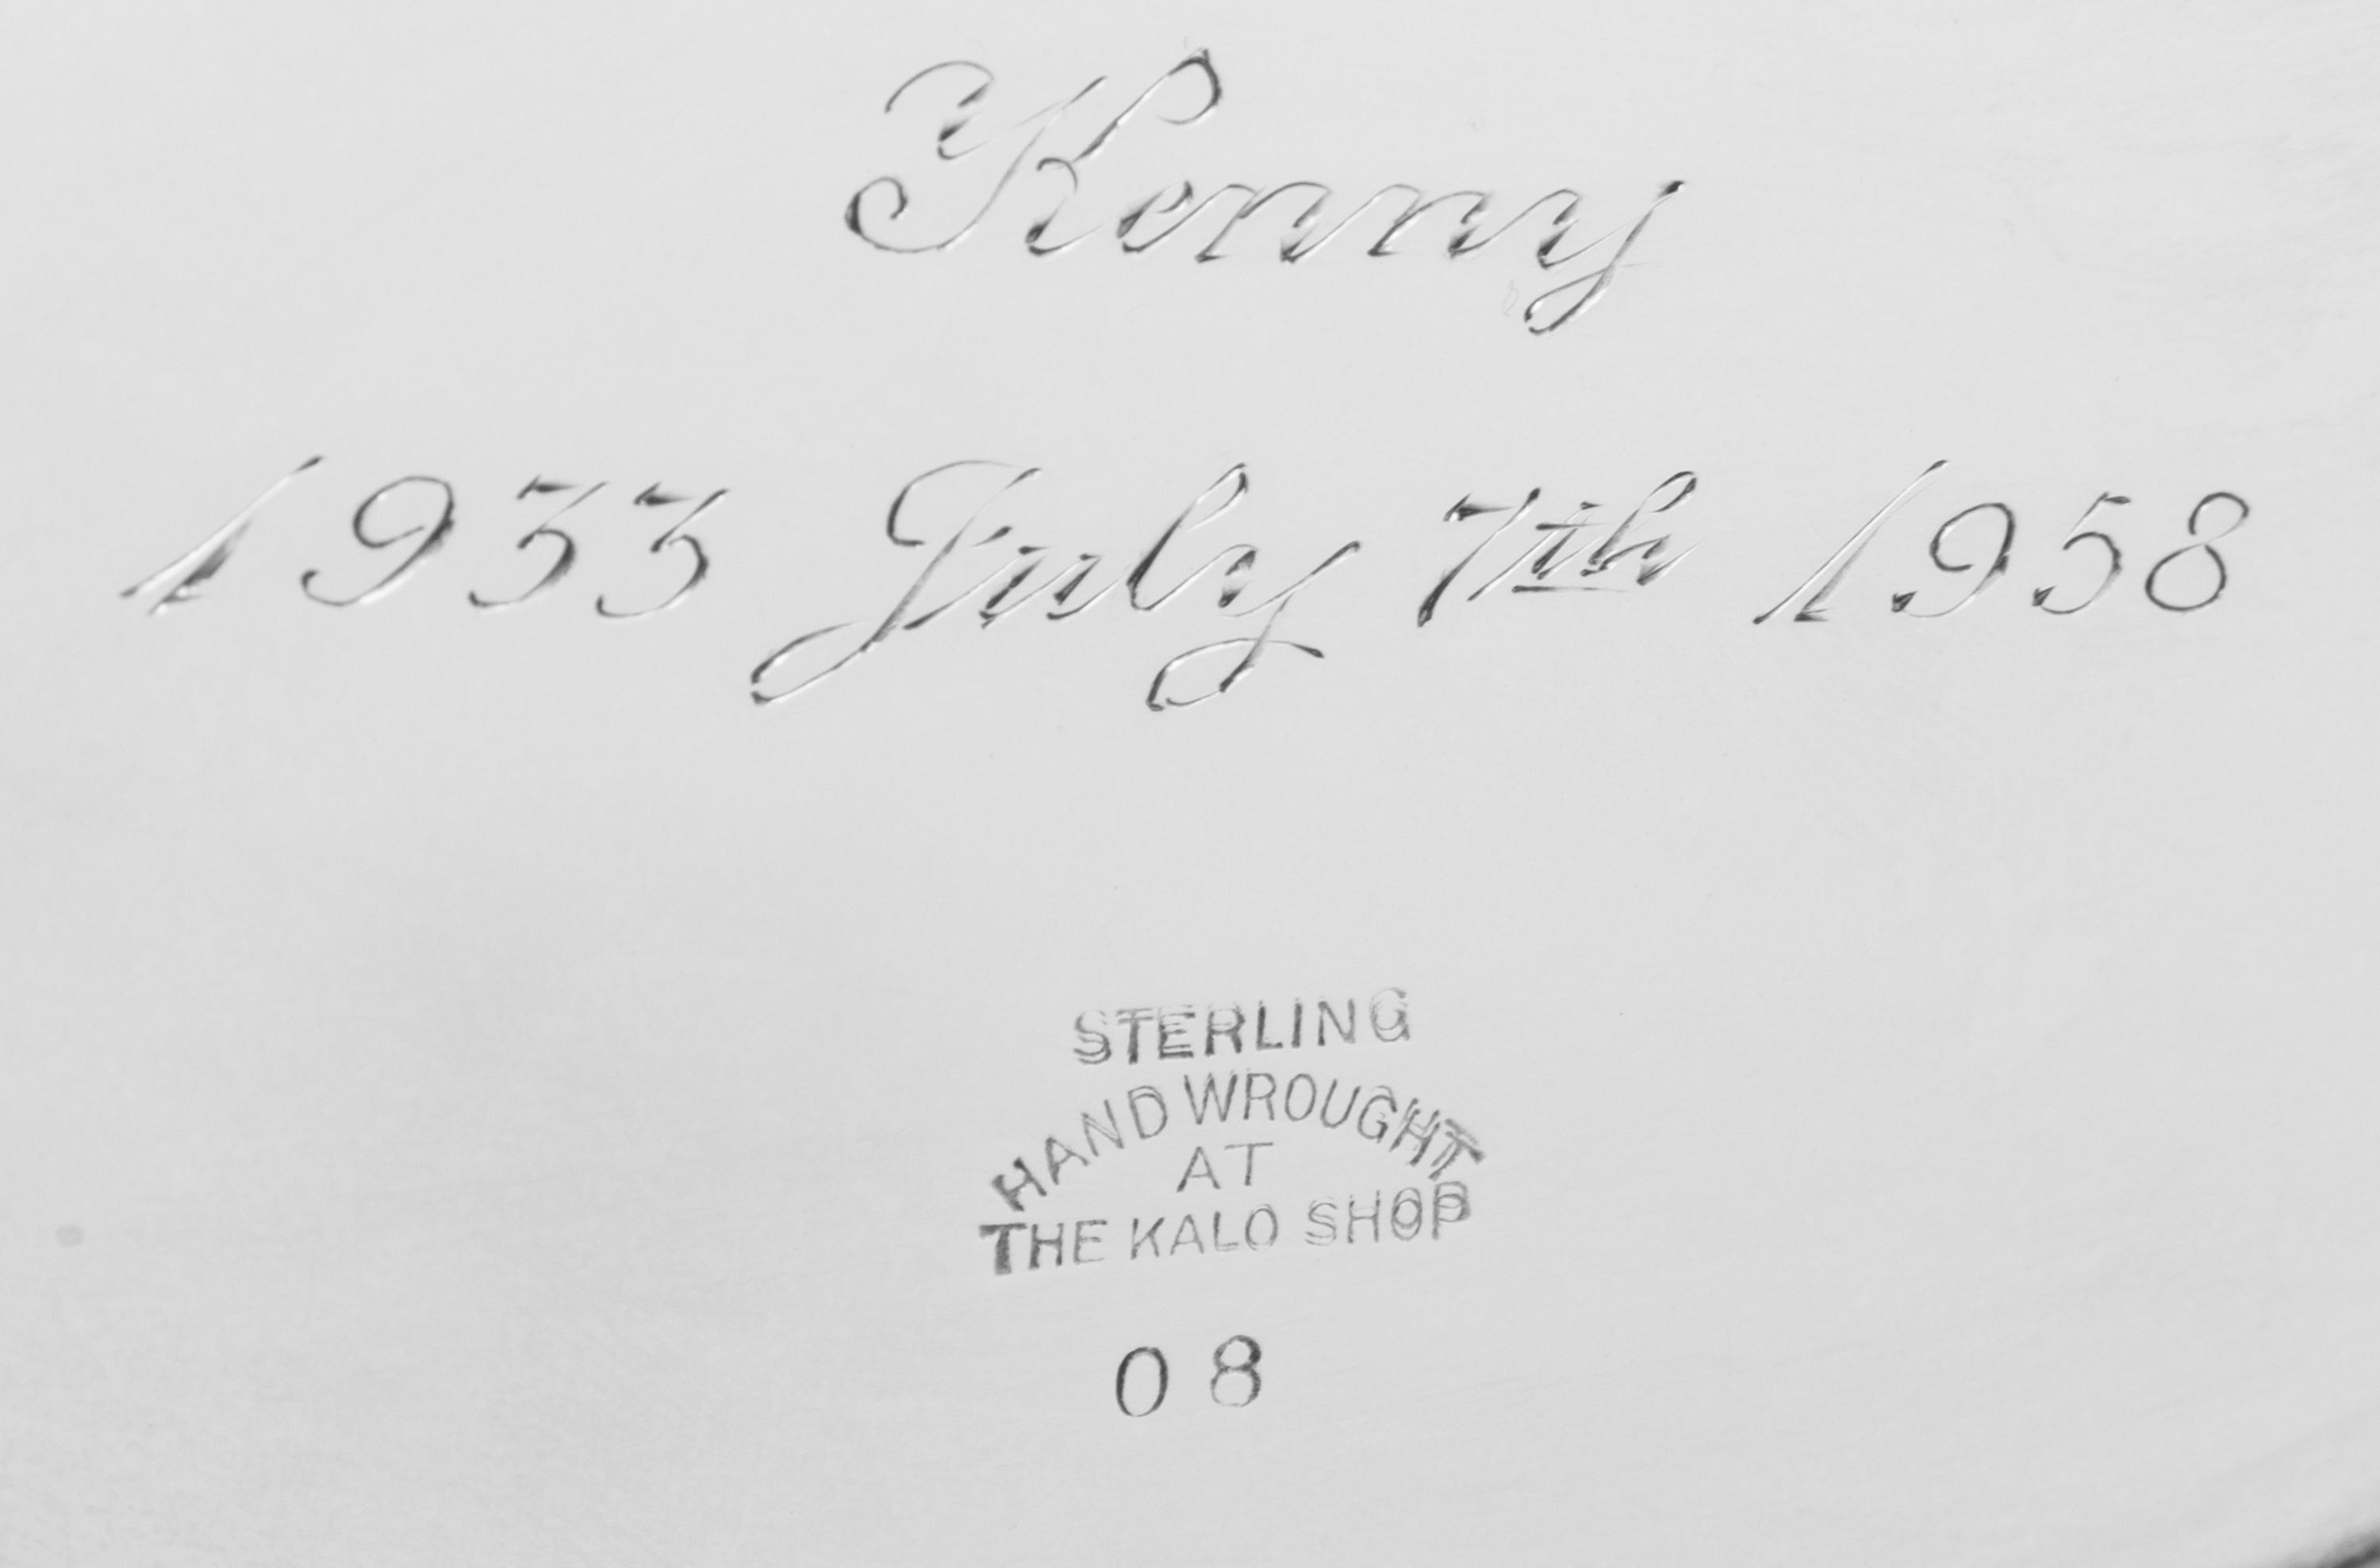 Kenny
1933 July 7th 1958
STERLING
HAND WROUGHT
AT
THE KALO SHOP
08